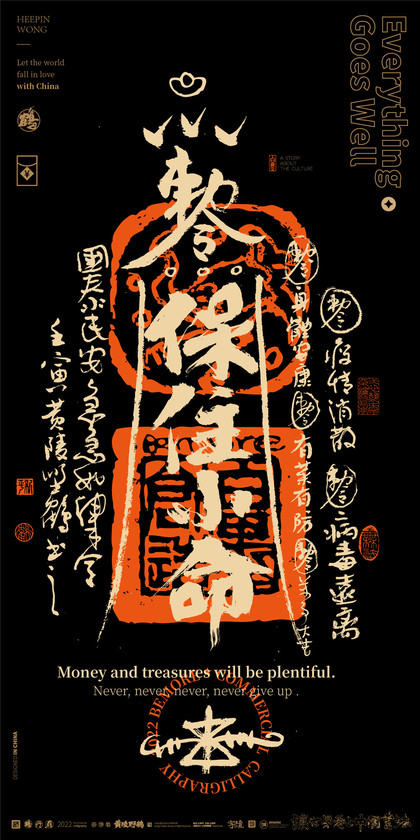 HEEPIN
WONG
Let the world
fall in love
with China
鶴
Everything
Goes Well
A STORY
ABOUT
THE CULTURE
敕
保住小命
敕 疫情消散
敕 病毒遠離
敕 身體安康
敕 有菜有防
敕
國泰民安 急急如律令
壬寅黄陵野鶴书之
Money and treasures will be plentiful.
Never, never, never, never give up .
2022 BEMORE COMMERCIAL CALLIGRAPHY
DESIGNED IN CHINA
2022
黄陵野鶴